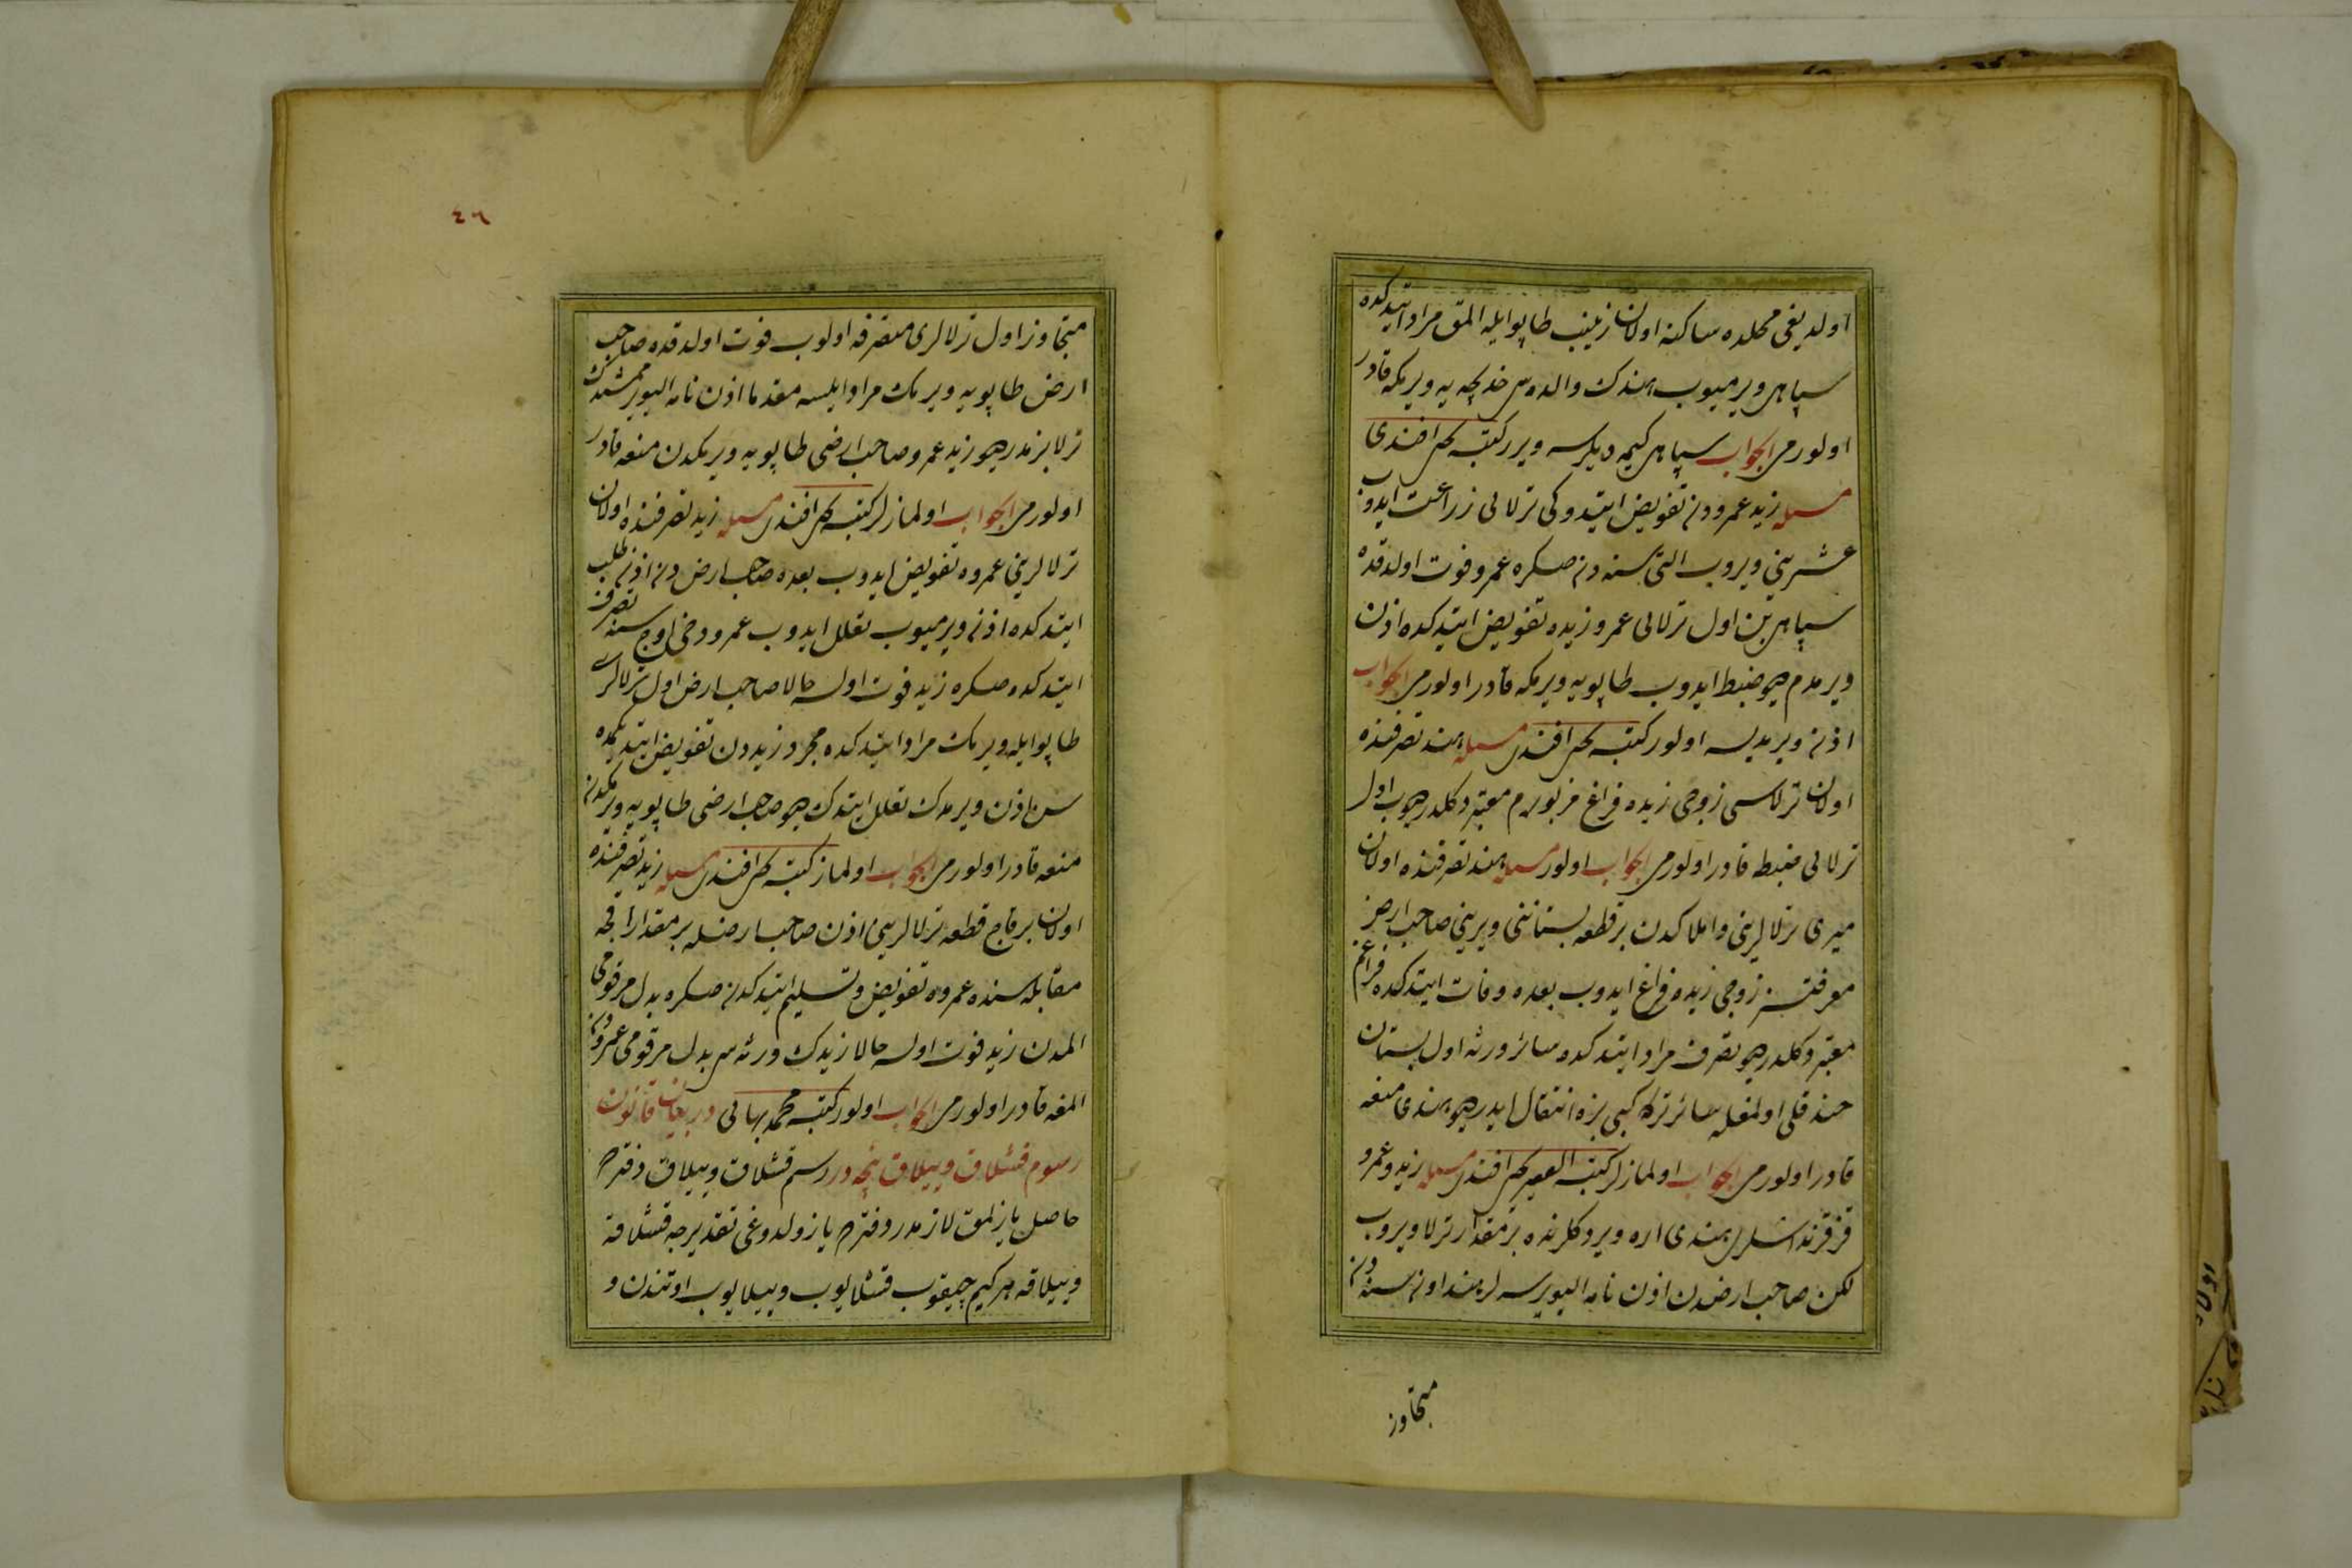 اولديغى محلده ساكنه اولان زينب طاپو ايله المق مراد ايتدكده
سپاهى ويرميوب هندك والده سى خديجه يه ويرمكه قادر
اولورمى الجواب سپاهى كيمه ديلرسه ويرر كتبه يحيى افندى
مسئله زيد عمرودن تفويض ايتدوكى ترلايى زراعت ايدوب
عشرينى ويروب التى سنه دن صكره عمرو فوت اولدقده
سپاهى بن اول ترلايى عمرو زيده تفويض ايتدكده اذن
ويرمدم ديو ضبط ايدوب طاپويه ويرمكه قادر اولورمى الجواب
اذن ويرمديسه اولور كتبه يحيى افندى مسئله هند تصرفنده
اولان ترلاسى زوجى زيده فراغ مزبورم معتبر دكلدر ديوب اول
ترلايى ضبط قادر اولورمى الجواب اولور مسئله هند تصرفنده اولان
ميرى ترلالرينى واملاكدن بر قطعه بستاننى ويرينى صاحب ارض
معرفتسز زوجى زيده فراغ ايدوب بعده وفات ايتدكده فراغم
معتبر دكلدر ديو تصرف مراد ايتدكده سائر ورثه اول بستان
حقلى اولمغله سائر تركه كبى بزه انتقال ايدر ديو هندى منعه
قادر اولورمى الجواب اولمازلر كتبه الفقير يحيى افندى مسئله زيد وعمرو
قز قرنداشلرى هندى اره ويردكلرنده بر مقدار ترلا ويروب
لكن صاحب ارضدن اذن نامه اليويرسه لر هند اون سنه دن
متجاوز
٤٦
متجاوز اول ترلالرى متصرفه اولوب فوت اولدقده صاحب
ارض طاپويه ويرمك مراد ايلسه مقدما اذن نامه اليويرممشدك
ترلا بزمدر ديو زيد عمرو صاحب ارضى طاپويه ويرمكدن منعه قادر
اولورمى الجواب اولمازلر كتبه يحيى افندى مسئله زيد تصرفنده اولان
ترلالرينى عمروه تفويض ايدوب بعده صاحب ارض دن اذن طلب
ايتدكده اذن ويرميوب تعلل ايدوب عمرو دخى اوچ سنه تصرف
ايتدكده صكره زيد فوت اولسه حالا صاحب ارض اول ترلالرى
طاپو ايله ويرمك مراد ايتدكده مجرد زيددن تفويض ايتديكمده
سن اذن ويرمدك تعلل ايتدك ديو صاحب ارضى طاپويه ويرمكدن
منعه قادر اولورمى الجواب اولماز كتبه يحيى افندى مسئله زيد تصرفنده
اولان بر قاچ قطعه ترلالرينى اذن صاحب ارضله بر مقدار اقچه
مقابله سنده عمروه تفويض وتسليم ايتدكدن صكره بدل مرقومى
المدن زيد فوت اولسه حالا زيدك ورثه سى بدل مرقومى عمرودن
المغه قادر اولورمى الجواب اولور كتبه محمد بهائى در بيان قانون
رسوم قشلاق وييلاق نيجه در رسم قشلاق وييلاق دفترده
حاصل يازلمق لازمدر دفترده يازولدوغى تقديرجه قشلاقه
وييلاقه هر كيم چيقوب قشلايوب وييلايوب اوتندن و